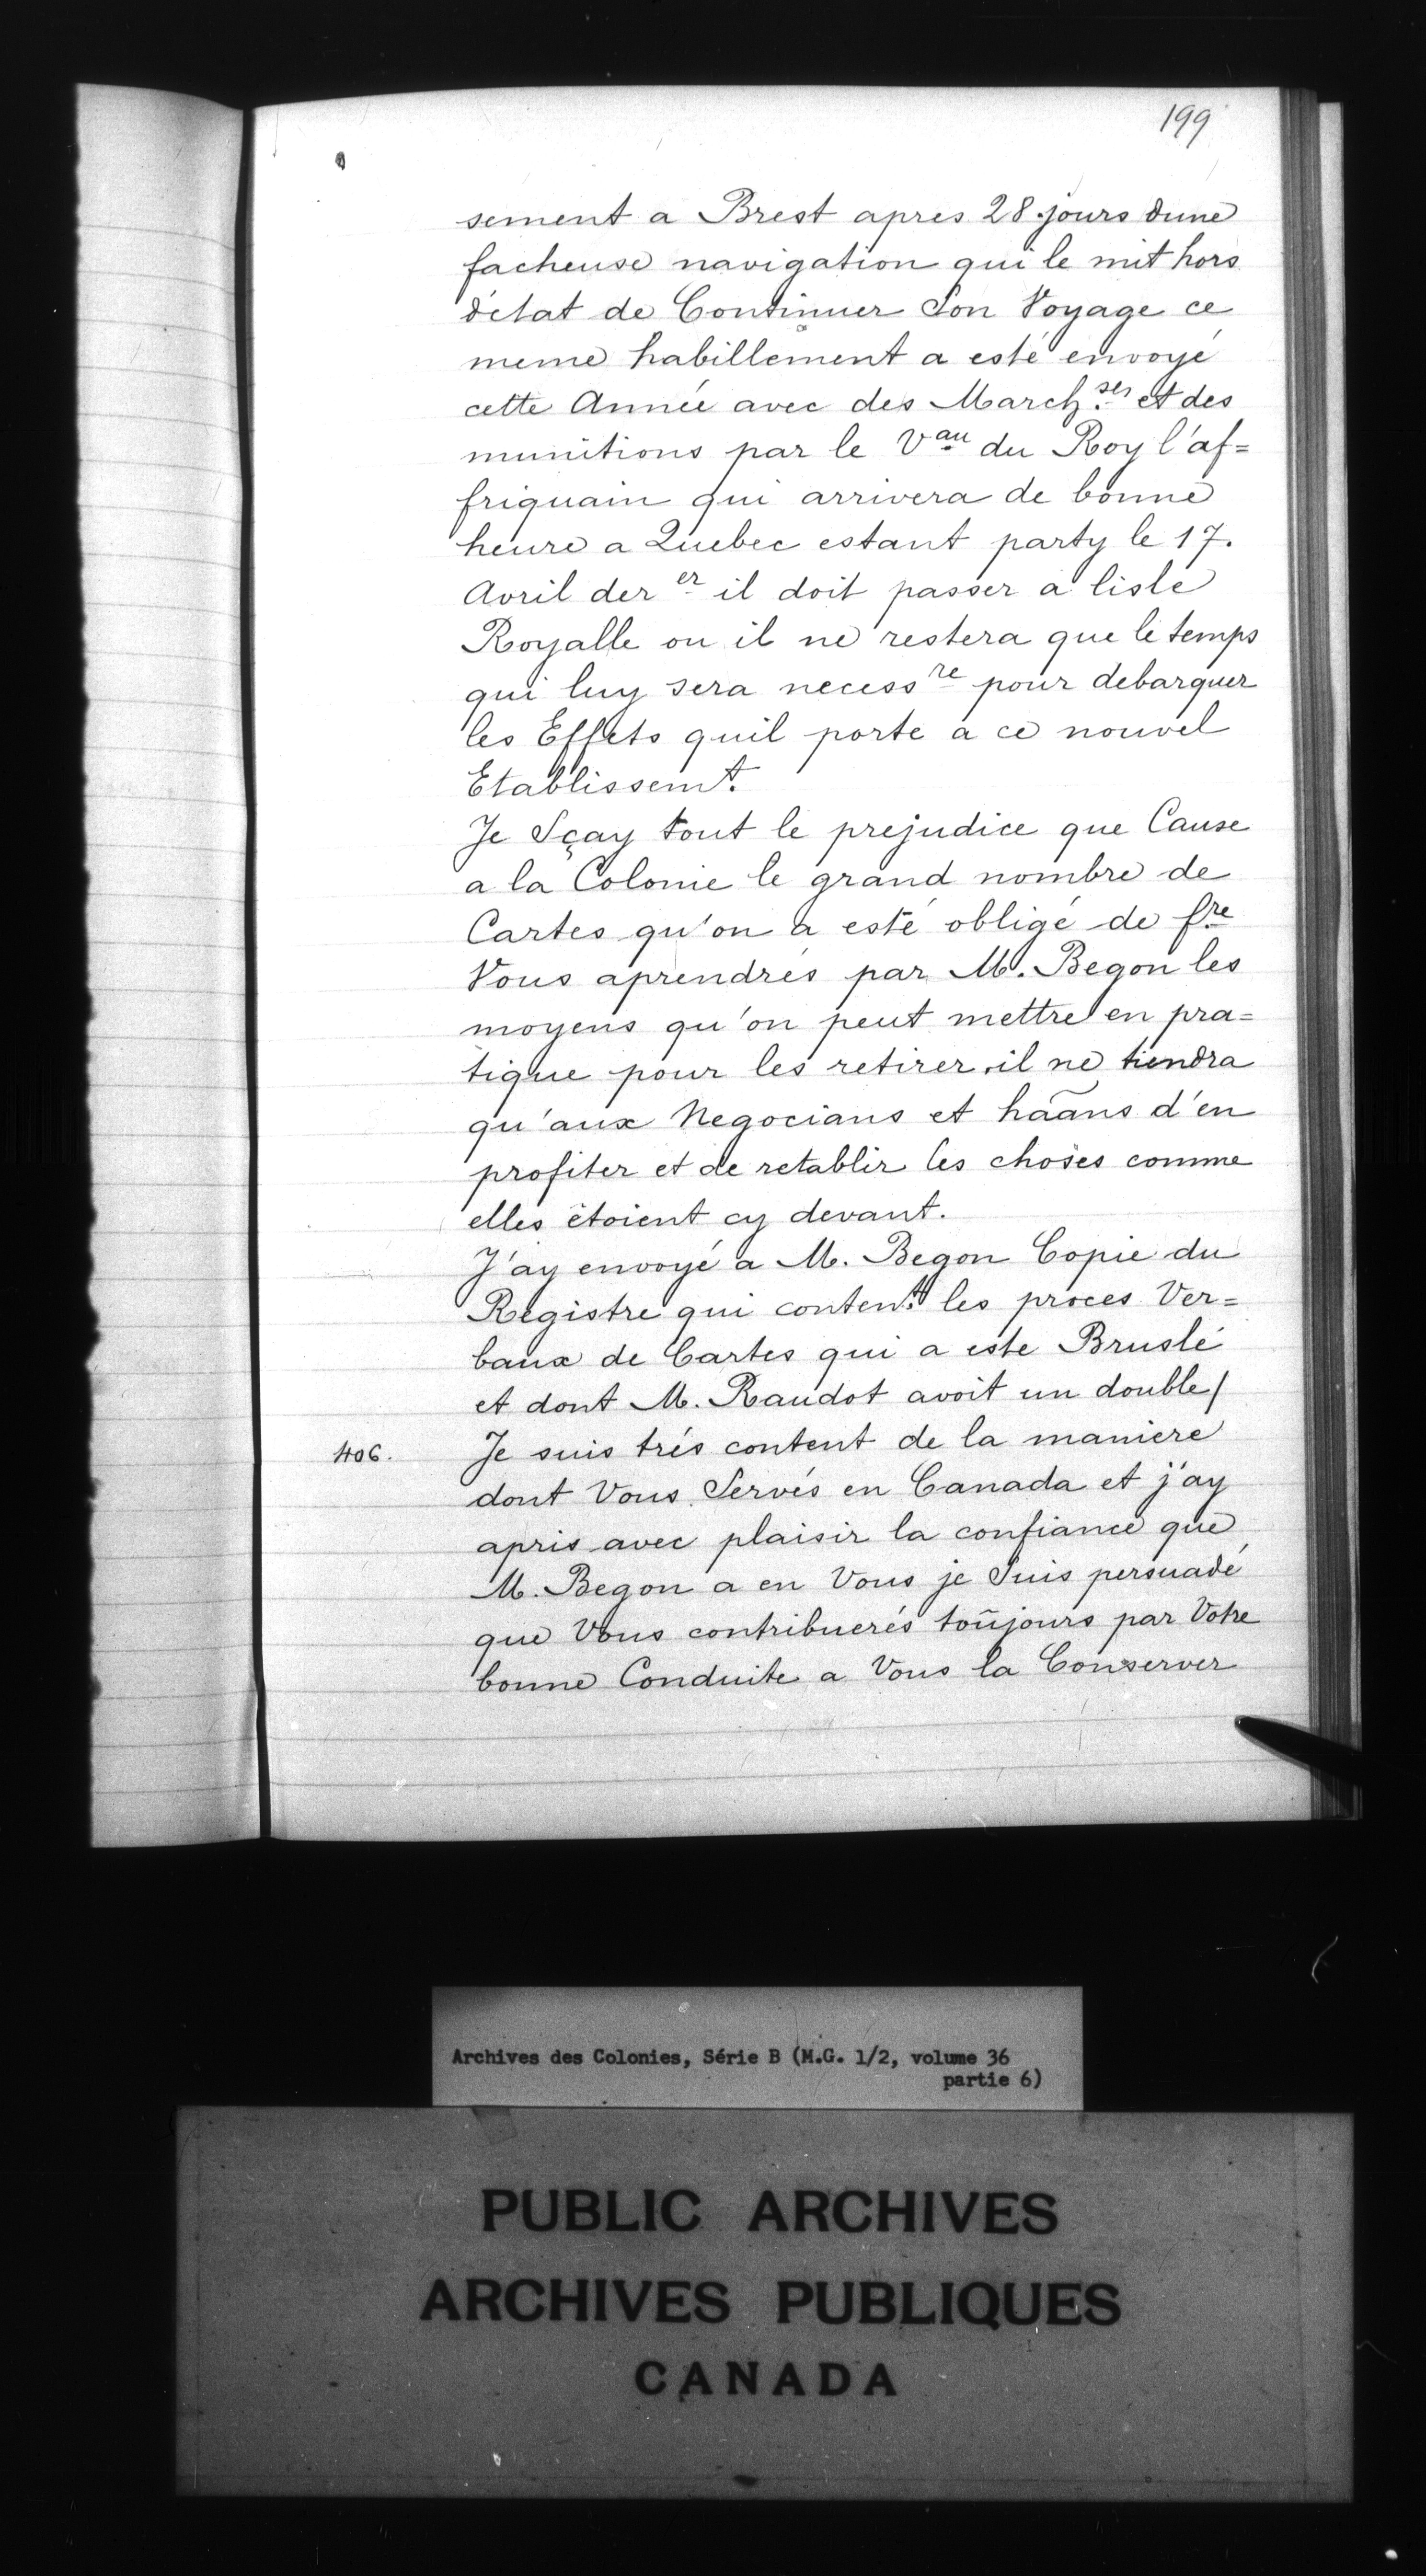 199
sement a Brest apres 28 jours dune
facheuse navigation qui le mit hors
d'etat de Continuer Son Voyage ce
meme habillement a esté envoyé
cette Année avec des March.ses et des
munitions par le Vau du Roy l'af=
friquain qui arrivera de bonne
heure a Quebec estant party le 17.
Avril der er il doit passer a lisle
Royalle ou il ne restera que le temps
qui luy sera necess re pour debarquer
les Effets quil porte a ce nouvel
Etablissemt.
Je Sçay tout le prejudice que Cause
a la Colonie le grand nombre de
Cartes qu'on a esté obligé de fre
Vous aprendrés par M. Begon les
moyens qu'on peut mettre en pra=
tique pour les retirer, il ne tiendra
qu'aux Negocians et hãans d'en
profiter et de retablir les choses comme
elles étoient cy devant.
J'ay envoyé a M. Begon Copie du
Registre qui content. les proces Ver=
baux de Cartes qui a este Bruslé
et dont M. Raudot avoit un double/
406. Je suis trés content de la maniere
dont Vous Servés en Canada et j'ay
apris avec plaisir la confiance que
M. Begon a en Vous je Suis persuadé
que Vous contribuerés toûjours par Votre
bonne Conduite a Vous la Conserver
Archives des Colonies, Série B (M.G. 1/2, volume 36
partie 6)
PUBLIC ARCHIVES
ARCHIVES PUBLIQUES
CANADA